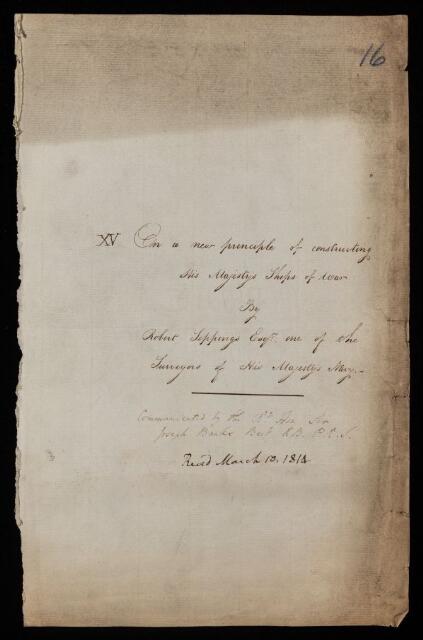 16
XV On a new principle of constructing
His Majestys Ships of War
By
Robert Seppings Esqr. one of the
Surveyors of His Majestys Navy.
Communicated by the Rt. Hon. Sir
Joseph Banks Bart K.B. P.R.S.
Read March 10. 1814